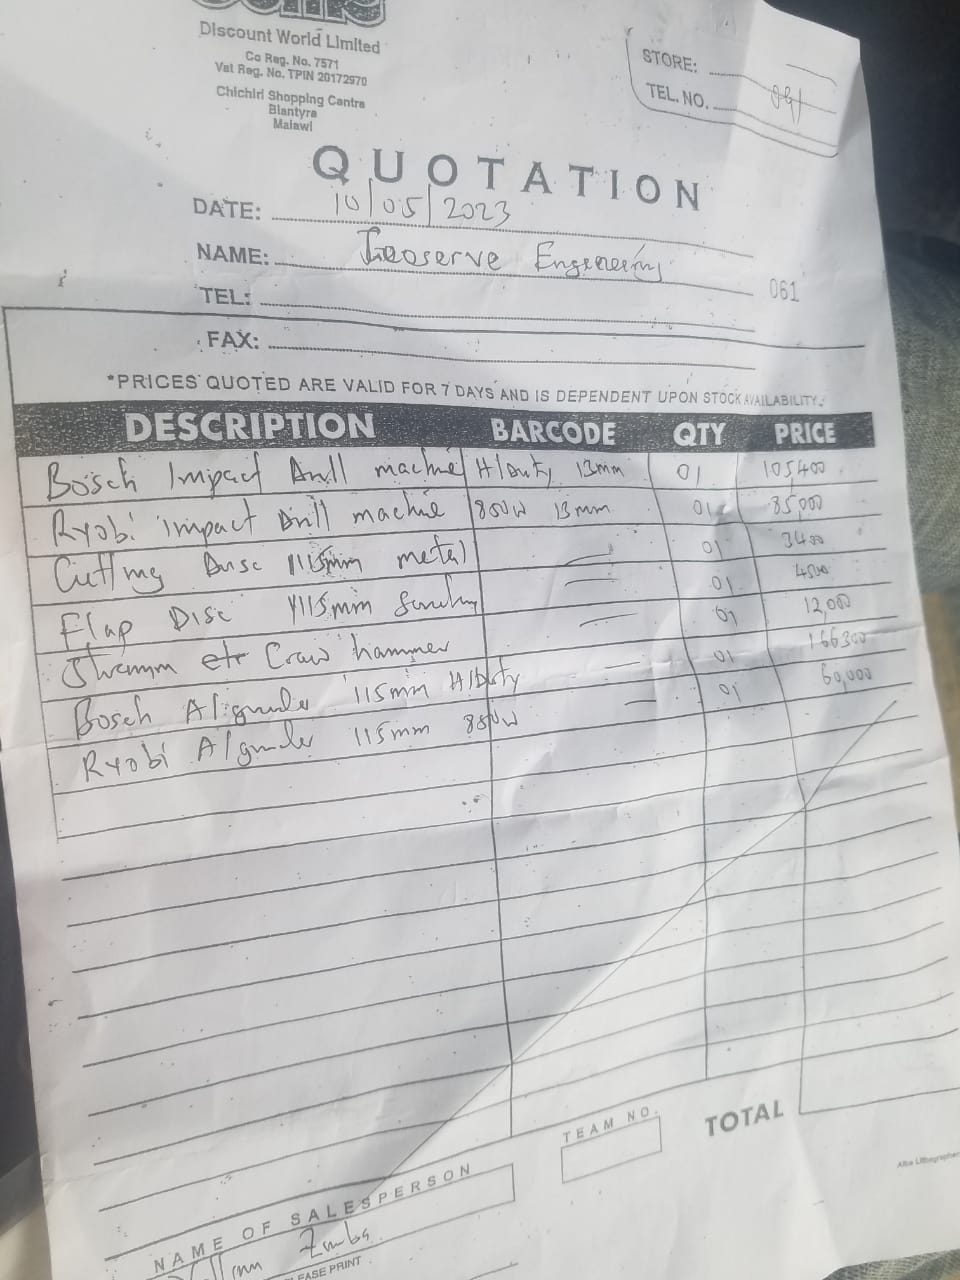 Discount World Limited
Co Reg. No. 7571
Vat Reg. No. TPIN 20172970
Chichiri Shopping Centre
Blantyre
Malawi
STORE:
TEL. NO.
QUOTATION
DATE: 10/05/2023
NAME: Engeneering
061
TEL:
FAX:
*PRICES QUOTED ARE VALID FOR 7 DAYS AND IS DEPENDENT UPON STOCK AVAILABILITY.
DESCRIPTION BARCODE QTY PRICE
Bosch Impact Drill machine H/Duty 13mm 01 105,400
Ryobi impact Drill machine 800W 13mm 01 85,000
Cutting Disc 115mm metal 01
Flap Disc 115mm 01
Craw hammer 01 12,000
Bosch A/grinder 115mm H/Duty 01 166300
Ryobi A/grinder 115mm 01 60,000
TOTAL
TEAM NO.
NAME OF SALESPERSON
PLEASE PRINT